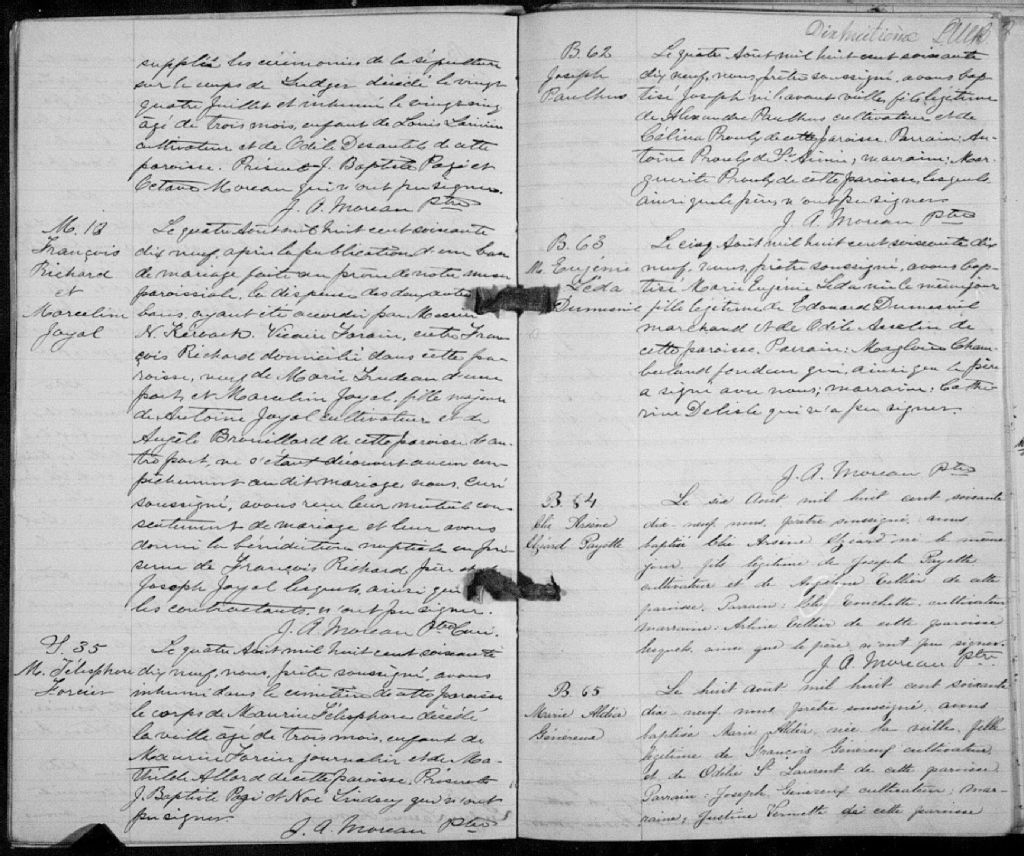 suppléé les cérémonies de la sépulture
sur le corps de Ludger décédé le vingt
quatre Juillet et inhumé le vingt cinq
âgé de trois mois, enfant de Louis
cultivateur et de Odile Desautels de cette
paroisse. Présents J. Baptiste Pagé et
Octave Moreau qui n'ont pu signer.
J. A. Moreau Ptre
M. 13
François
Richard
et
Marceline
Joyal
Le quatre Août mil huit cent soixante
dix neuf, après la publication d'un ban
de mariage faite au prône de notre messe
paroissiale, la dispense des deux autres
bans, ayant été accordée par Messire
N. Kéroack. Vicaire Forain, entre Fran-
çois Richard domicilié dans cette pa-
roisse, veuf de Marie Trudeau d'une
part, et Marceline Joyal, fille majeure
de Antoine Joyal cultivateur et de
Angèle Brouillard de cette paroisse d'au-
tre part, ne s'étant découvert aucun em-
pêchement au dit mariage nous, Curé
soussigné, avons reçu leur mutuel con-
sentement de mariage et leur avons
donné la bénédiction nuptiale en pré-
sence de François Richard père et de
Joseph Joyal lesquels, ainsi que
les contractants, n'ont pu signer.
J. A. Moreau Ptre Curé.
S. 35
M. Télesphore
Forcier
Le quatre Août mil huit cent soixante
dix neuf, nous, prêtre soussigné, avons
inhumé dans le cimetière de cette paroisse
le corps de Maurice Télesphore décédé
la veille âgé de trois mois, enfant de
Maurice Forcier journalier et de Ma-
thilde Allard de cette paroisse. Présents
J. Baptiste Pagé et Noé Lindsey qui n'ont
pu signer.
J. A. Moreau Ptre
Dixhuitième
B. 62
Joseph
Paulhus
Le quatre Août mil huit cent soixante
dix neuf, nous, prêtre soussigné, avons bap-
tisé Joseph né l'avant veille, fils légitime
de Alexandre Paulhus cultivateur et de
Célina Proulx de cette paroisse. Parrain: An-
toine Proulx de St Aimé; marraine: Mar-
guerite Proulx de cette paroisse, lesquels
ainsi que le père, n'ont pu signer.
J. A. Moreau Ptre
B. 63
M. Eugénie
Léda
Dumesnil
Le cinq Août mil huit cent soixante dix
neuf, nous, prêtre soussigné, avons bap-
tisé Marie Eugénie Léda née le même jour
fille légitime de Edouard Dumesnil
marchand et de Odile Asselin de
cette paroisse. Parrain: Magloire Cham-
berland fondeur qui, ainsi que le père
a signé avec nous; marraine: Cathe-
rine Delisle qui n'a pu signer.
J. A. Moreau Ptre
B. 64
Elie Arsène
Ozéard Payette
Le six Aout mil huit cent soixante
dix-neuf nous, prêtre soussigné, avons
baptisé Elie Arsène Ozéard né le même
jour, fils légitime de Joseph Payette
cultivateur et de Tellier de cette
paroisse. Parrain: Elie Touchette, cultivateur
marraine: Arline Tellier de cette paroisse
lesquels, ainsi que le père, n'ont pu signer.
J. A. Moreau Ptre
B. 65
Marie Aldéa
Généreux
Le huit Aout mil huit cent soixante
dix-neuf nous prêtre soussigné, avons
baptisé Marie Aldéa, née la veille, fille
légitime de François Généreux cultivateur
et de Odile St Laurent de cette paroisse
Parrain: Joseph Généreux cultivateur, mar-
raine; Justine Vernette de cette paroisse